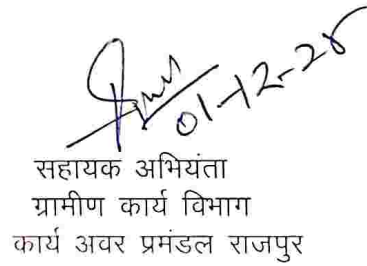 01-12-25
सहायक अभियंता
ग्रामीण कार्य विभाग
कार्य अवर प्रमंडल राजपुर